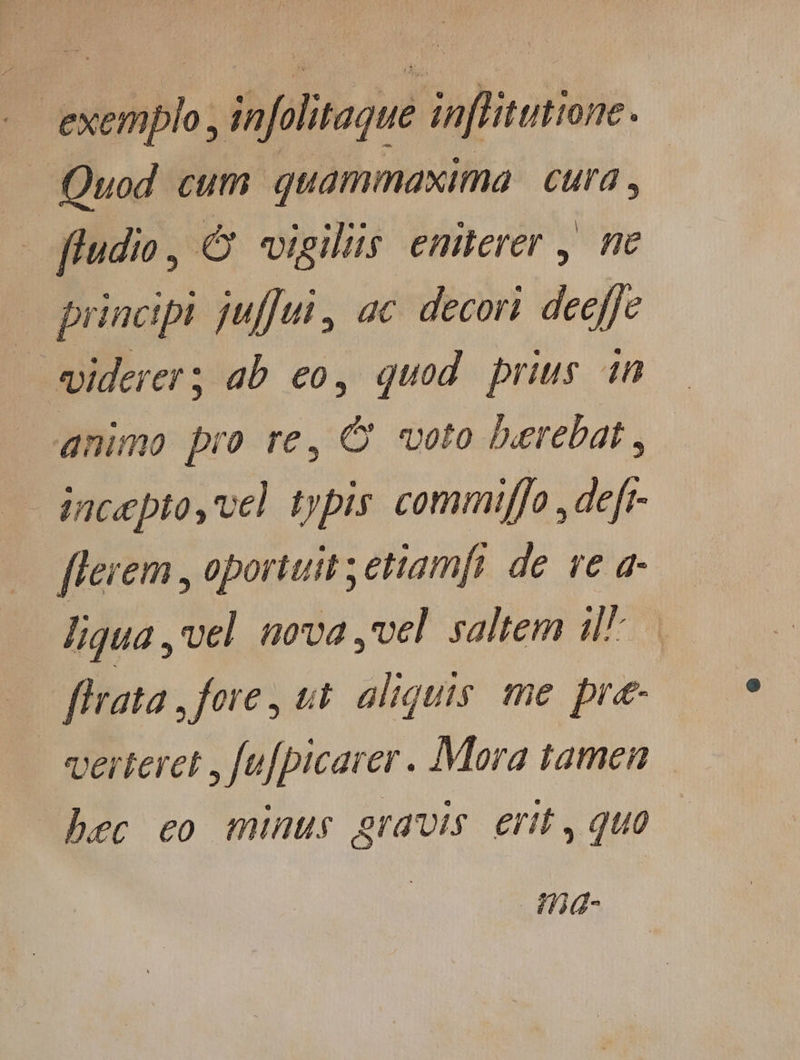 exemplo, inſolitaque inſtitutione.
Quod cum quammaxima cura,
ſtudio, & vigiliis eniterer, ne
principi juſſui, ac decori deeſſe
viderer; ab eo, quod prius in
animo pro re, & voto hærebat,
incæpto, vel typis commiſſo, deſi-
ſterem, oportuit; etiamſi de re a-
liqua, vel nova, vel saltem ill-
ſtrata, fore, ut aliquis me præ-
verteret, ſuſpicarer. Mora tamen
hæc eo minus gravis erit, quo
ma-